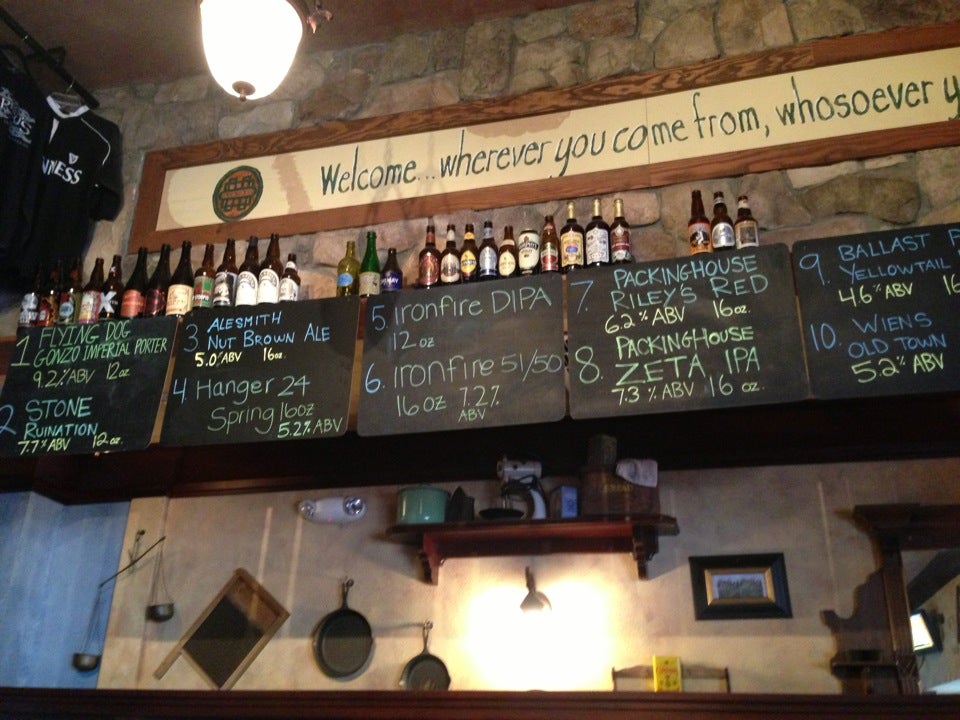 Welcome... wherever you come from, whosoever y
NNESS
1 FLYING DOG
GONZO IMPERIAL PORTER
9.2% ABV 12oz
2 STONE
RUINATION
7.7% ABV 12oz.
3 ALESMITH
NUT BROWN ALE
5.0% ABV 16oz
4 Hanger 24
Spring 16oz
5.2% ABV
5. Ironfire DIPA
12 oz
6. Ironfire 51/50
16 oz 7.2%
ABV
7. PACKINGHOUSE
RILEY'S RED
6.2% ABV 16oz.
8. PACKINGHOUSE
ZETA IPA
7.3% ABV 16 oz.
9. BALLAST P
YELLOWTAIL
4.6% ABV 16
10. WIENS
OLD TOWN
5.2% ABV